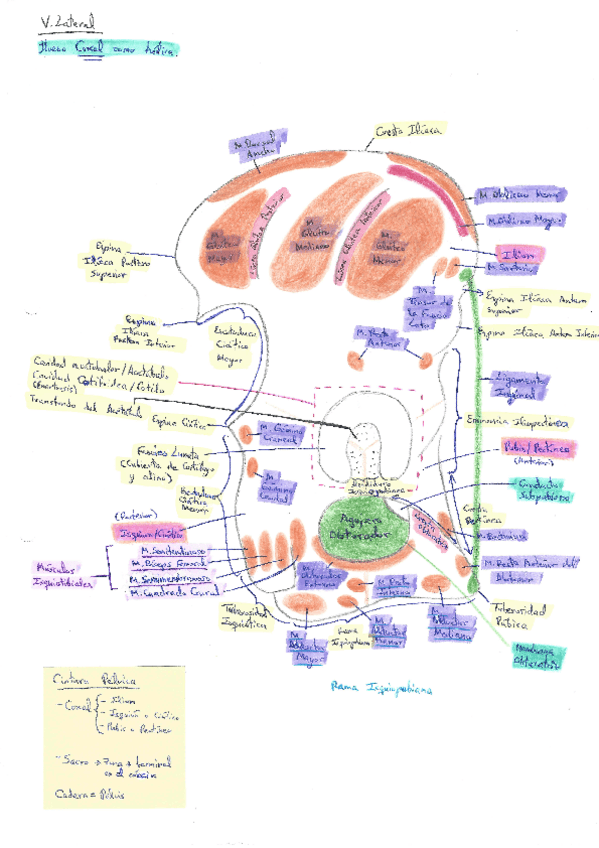 V. Lateral
Hueso Coxal como
Cresta Ilíaca
M. Oblicuo Menor
M. Oblicuo Mayor
Ilion
M. Sartorio
M.
Glúteo
Mayor
Línea Glútea Posterior
M.
Glúteo
Mediano
Línea Glútea Anterior
M.
Glúteo
Menor
M.
Tensor de
la Fascia
Lata
Espina
Ilíaca Postero
Superior
Espina Ilíaca Antero
Superior
Espina
Ilíaca
Postero Inferior
Escotadura
Ciática
Mayor
M. Recto
Anterior
Espina Ilíaca Antero Inferior
Ligamento
Inguinal
Eminencia Iliopectínea
Cavidad acetabular/Acetábulo
Cavidad Cotiloidea/Cotilo
Trasfondo del Acetábulo
Espina Ciática
M. Gémino
Craneal
Fascies Lunata
(Cubierta de Cartílago
y
M.
Gémino
Caudal
Escotadura
Ciática
Menor
Escotadura
Isquiopubiana
Pubis/Pectíneo
(Anterior)
Conducto
Subpubiano
Cresta
Pectínea
Cresta
Obturatriz
Agujero
Obturador
(Posterior)
Isquion/Ciático
Músculos
Isquiotibiales
M. Semitendinoso
M. Bíceps Femoral
M. Semimembranoso
M. Cuadrado Crural
M. Obturador
Externo
M. Recto
Interno
M. Recto Anterior del
Abdomen
Tuberosidad
Isquiática
M.
Aductor
Mayor
Rama
Isquiopubiana
M.
Aductor
Menor
M.
Aductor
Mediano
Tuberosidad
Púbica
Membrana
Obturatriz
Rama Isquiopubiana
Cintura Pélvica
- Coxal
- Ilion
- Isquion o Ciático
- Pubis o Pectíneo
- Sacro
Cadera = Pelvis